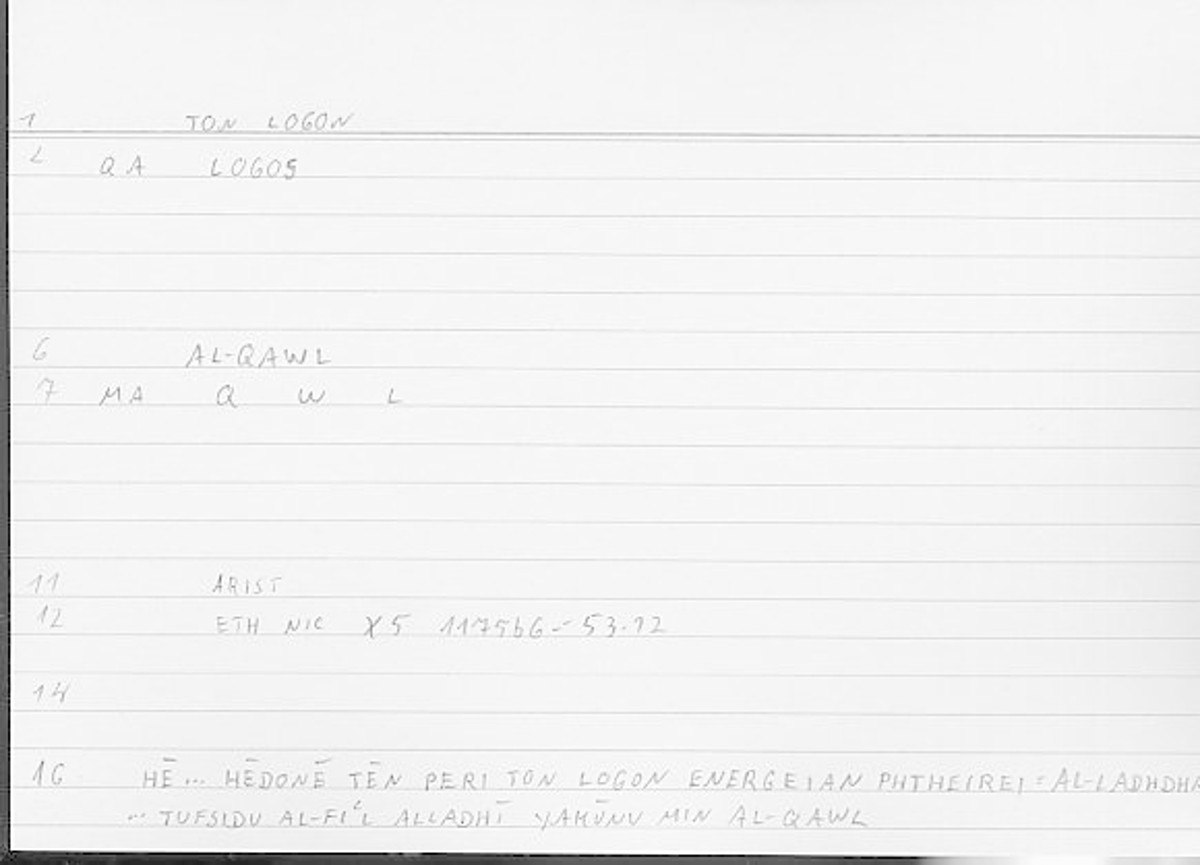 1 TON LOGON
2 QA LOGOS
6 AL-QAWL
7 MA Q W L
11 ARIST
12 ETH NIC X5 1175b6 - 53.12
14
16 HĒ... HĒDONĒ TĒN PERI TON LOGON ENERGEIAN PHTHEIREI = AL-LADHDHA
... TUFSIDU AL-FIʿL ALLADHĪ YAKŪNU MIN AL-QAWL